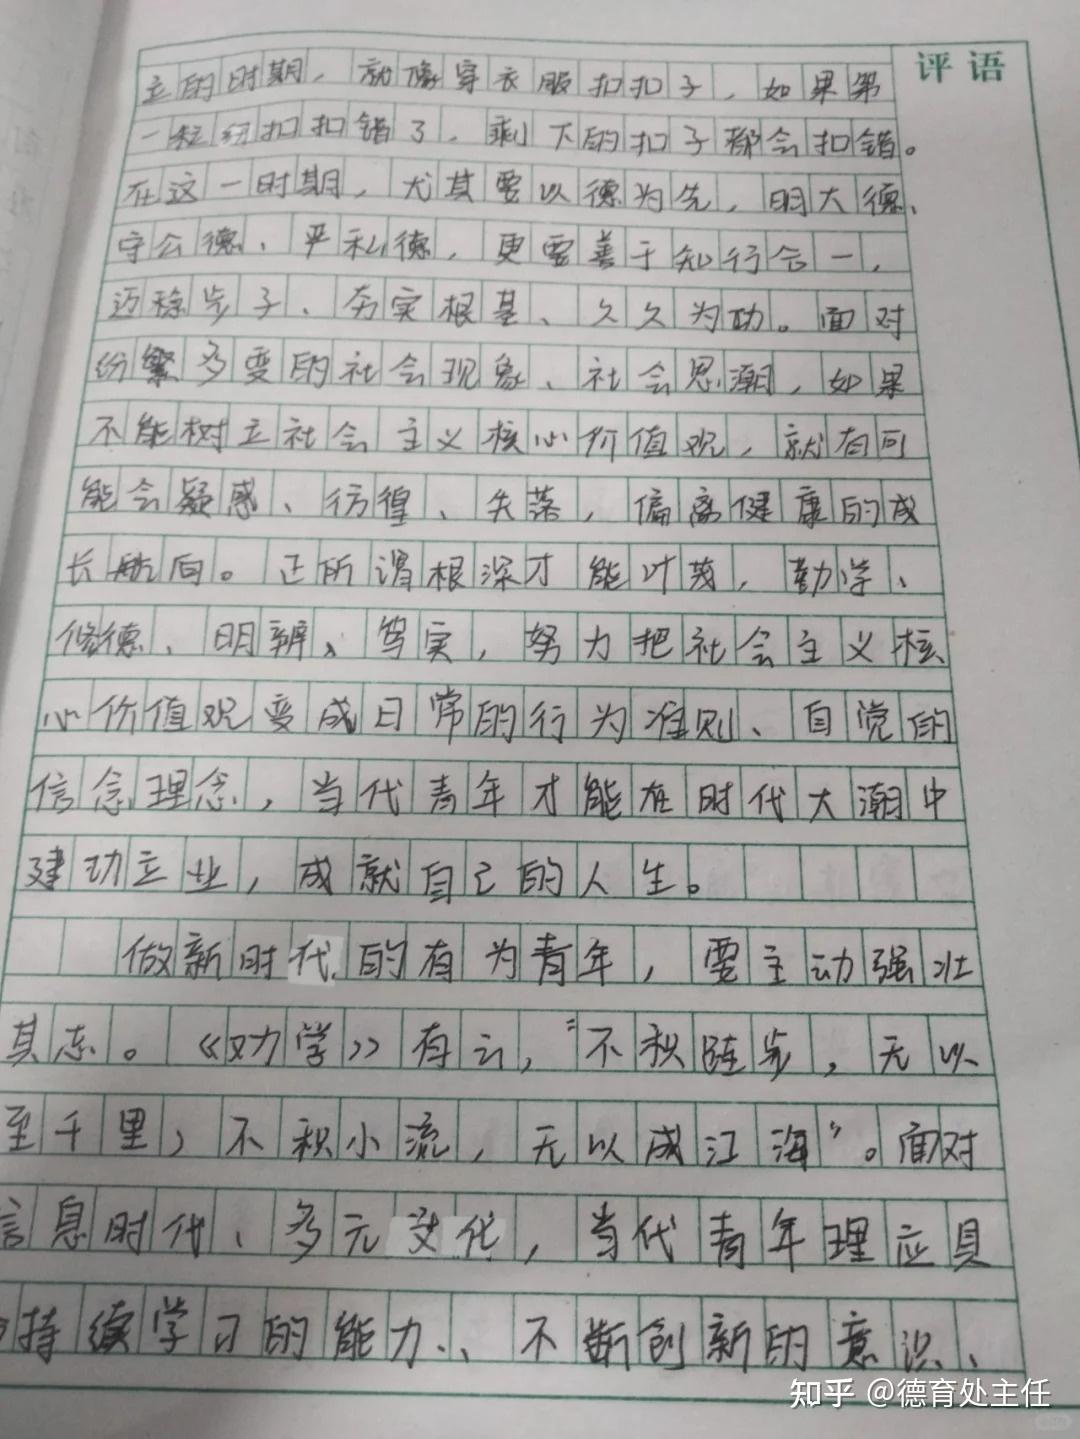 评语
立的时期，就像穿衣服扣扣子，如果第
一粒纽扣扣错了，剩下的扣子都会扣错。
在这一时期，尤其要以德为先，明大德、
守公德、严私德，更要善于知行合一，
迈稳步子、夯实根基、久久为功。面对
纷繁多变的社会现象、社会思潮，如果
不能树立社会主义核心价值观，就有可
能会疑惑、彷徨、失落，偏离健康的成
长航向。正所谓根深才能叶茂，勤学、
修德、明辨、笃实，努力把社会主义核
心价值观变成日常的行为准则、自觉的
信念理念，当代青年才能在时代大潮中
建功立业，成就自己的人生。
做新时代的有为青年，要主动强壮
其志。《劝学》有云，“不积跬步，无以
至千里，不积小流，无以成江海”。面对
信息时代、多元文化，当代青年理应具
持续学习的能力、、不断创新的意识、
知乎 @德育处主任